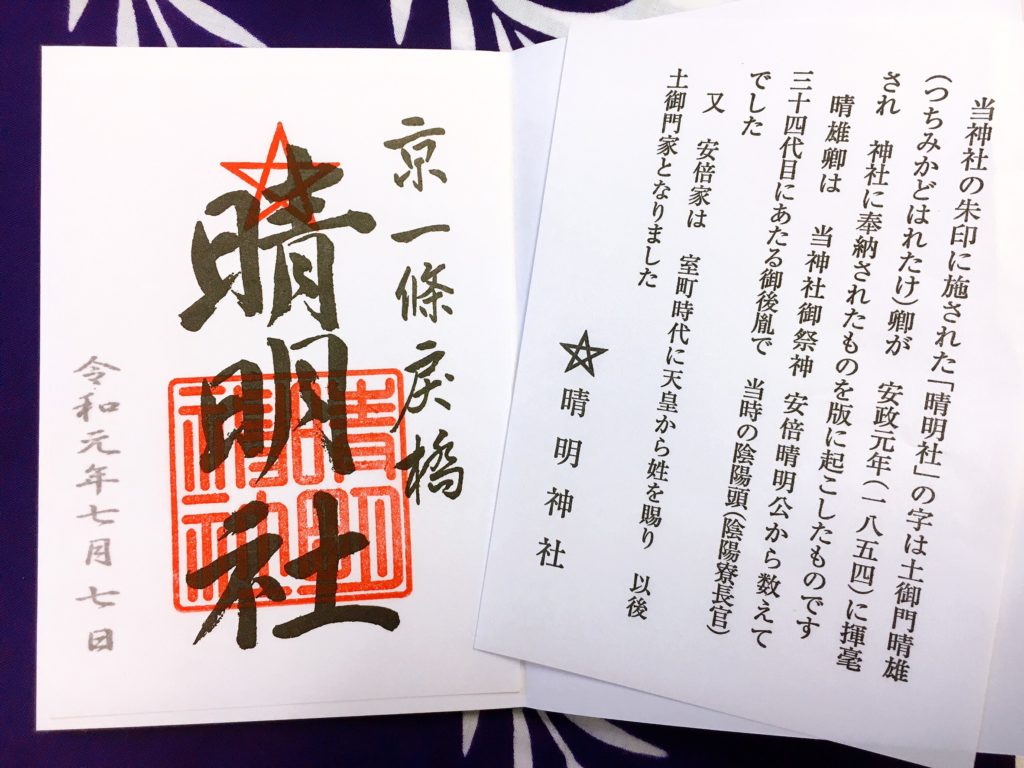 京一條戻橋
晴明社
令和元年七月七日
当神社の朱印に施された「晴明社」の字は土御門晴雄
(つちみかどはれたけ)卿が 安政元年(一八五四)に揮毫
され 神社に奉納されたものを版に起こしたものです
晴雄卿は 当神社御祭神 安倍晴明公から数えて
三十四代目にあたる御後胤で 当時の陰陽頭(陰陽寮長官)
でした
又 安倍家は 室町時代に天皇から姓を賜り 以後
土御門家となりました
晴明神社